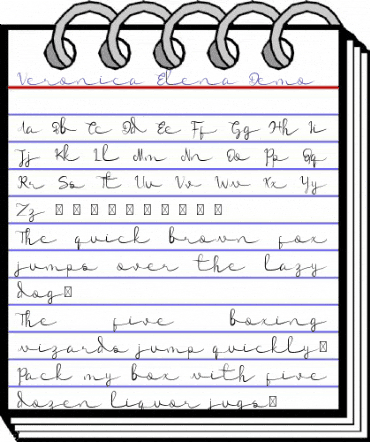 Veronica Elena Demo
Aa Bb Cc Dd Ee Ff Gg Hh Ii
Jj Kk Ll Mm Nn Oo Pp Qq
Rr Ss Tt Uu Vv Ww Xx Yy
Zz
The quick brown fox
jumps over the lazy
dog
The five boxing
wizards jump quickly
Pack my box with five
dozen liquor jugs